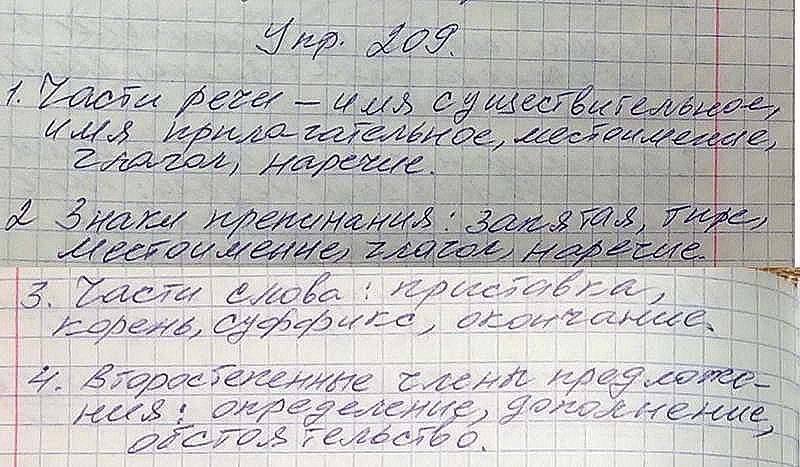 Упр. 209.
1. Части речи – имя существительное,
имя прилагательное, местоимение,
глагол, наречие.
2 Знаки препинания: запятая, тире,
местоимение, глагол, наречие.
3. Части слова: приставка,
корень, суффикс, окончание.
4. Второстепенные члены предложе-
ния: определение, дополнение,
обстоятельство.